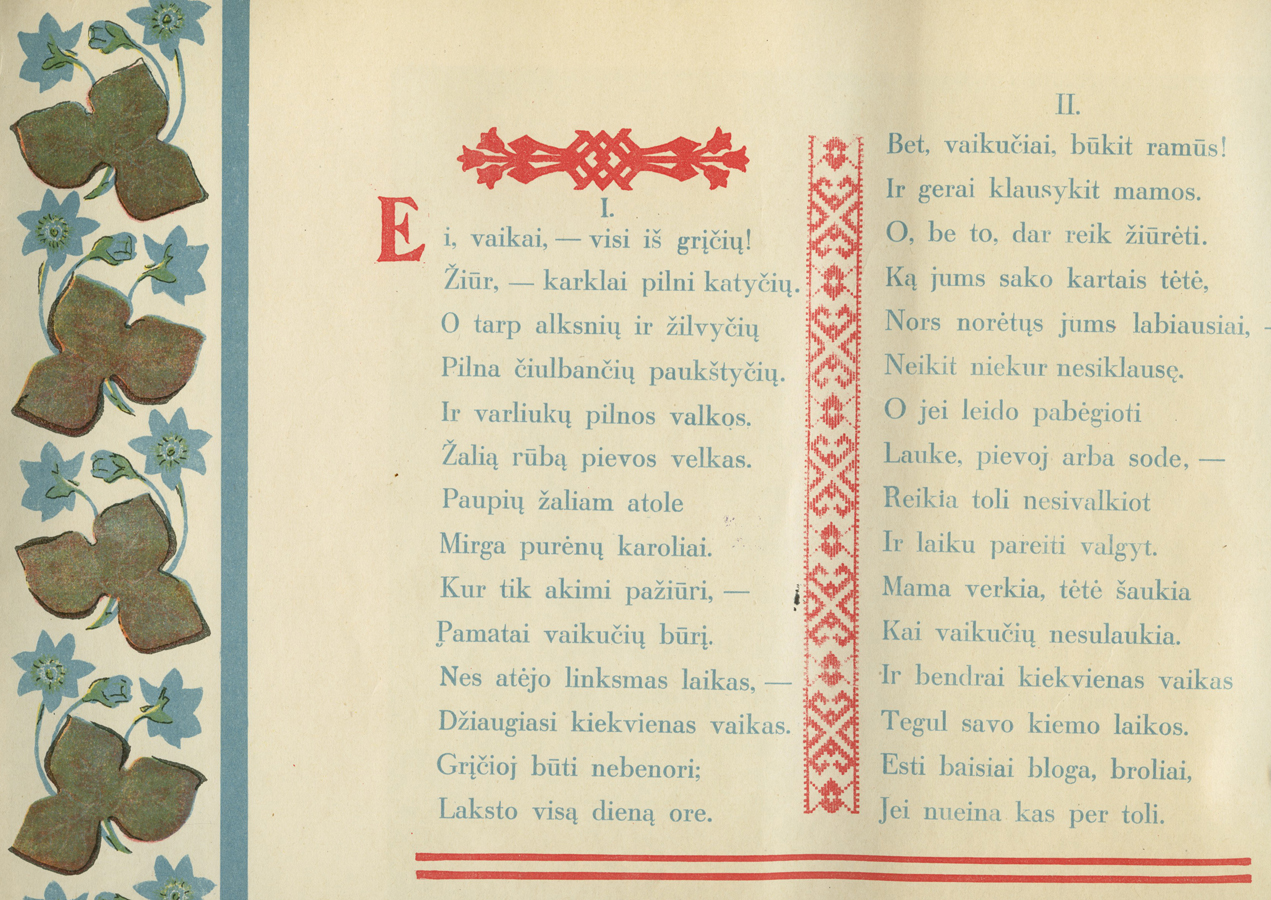 I.
Ei, vaikai, — visi iš gričių!
Žiūr, — karklai pilni katyčių.
O tarp alksnių ir žilvyčių
Pilna čiulbančių paukštyčių.
Ir varliukų pilnos valkos.
Žalią rūbą pievos velkas.
Paupių žaliam atole
Mirga purėnų karoliai.
Kur tik akimi pažiūri, —
Pamatai vaikučių būrį.
Nes atėjo linksmas laikas, —
Džiaugiasi kiekvienas vaikas.
Gričioj būti nebenori;
Laksto visą dieną ore.
II.
Bet, vaikučiai, būkit ramūs!
Ir gerai klausykit mamos.
O, be to, dar reik žiūrėti.
Ką jums sako kartais tėtė,
Nors norėtųs jums labiausiai, —
Neikit niekur nesiklausę.
O jei leido pabėgioti
Lauke, pievoj arba sode, —
Reikia toli nesivalkiot
Ir laiku pareiti valgyt.
Mama verkia, tėtė šaukia
Kai vaikučių nesulaukia.
Ir bendrai kiekvienas vaikas
Tegul savo kiemo laikos.
Esti baisiai bloga, broliai,
Jei nueina kas per toli.